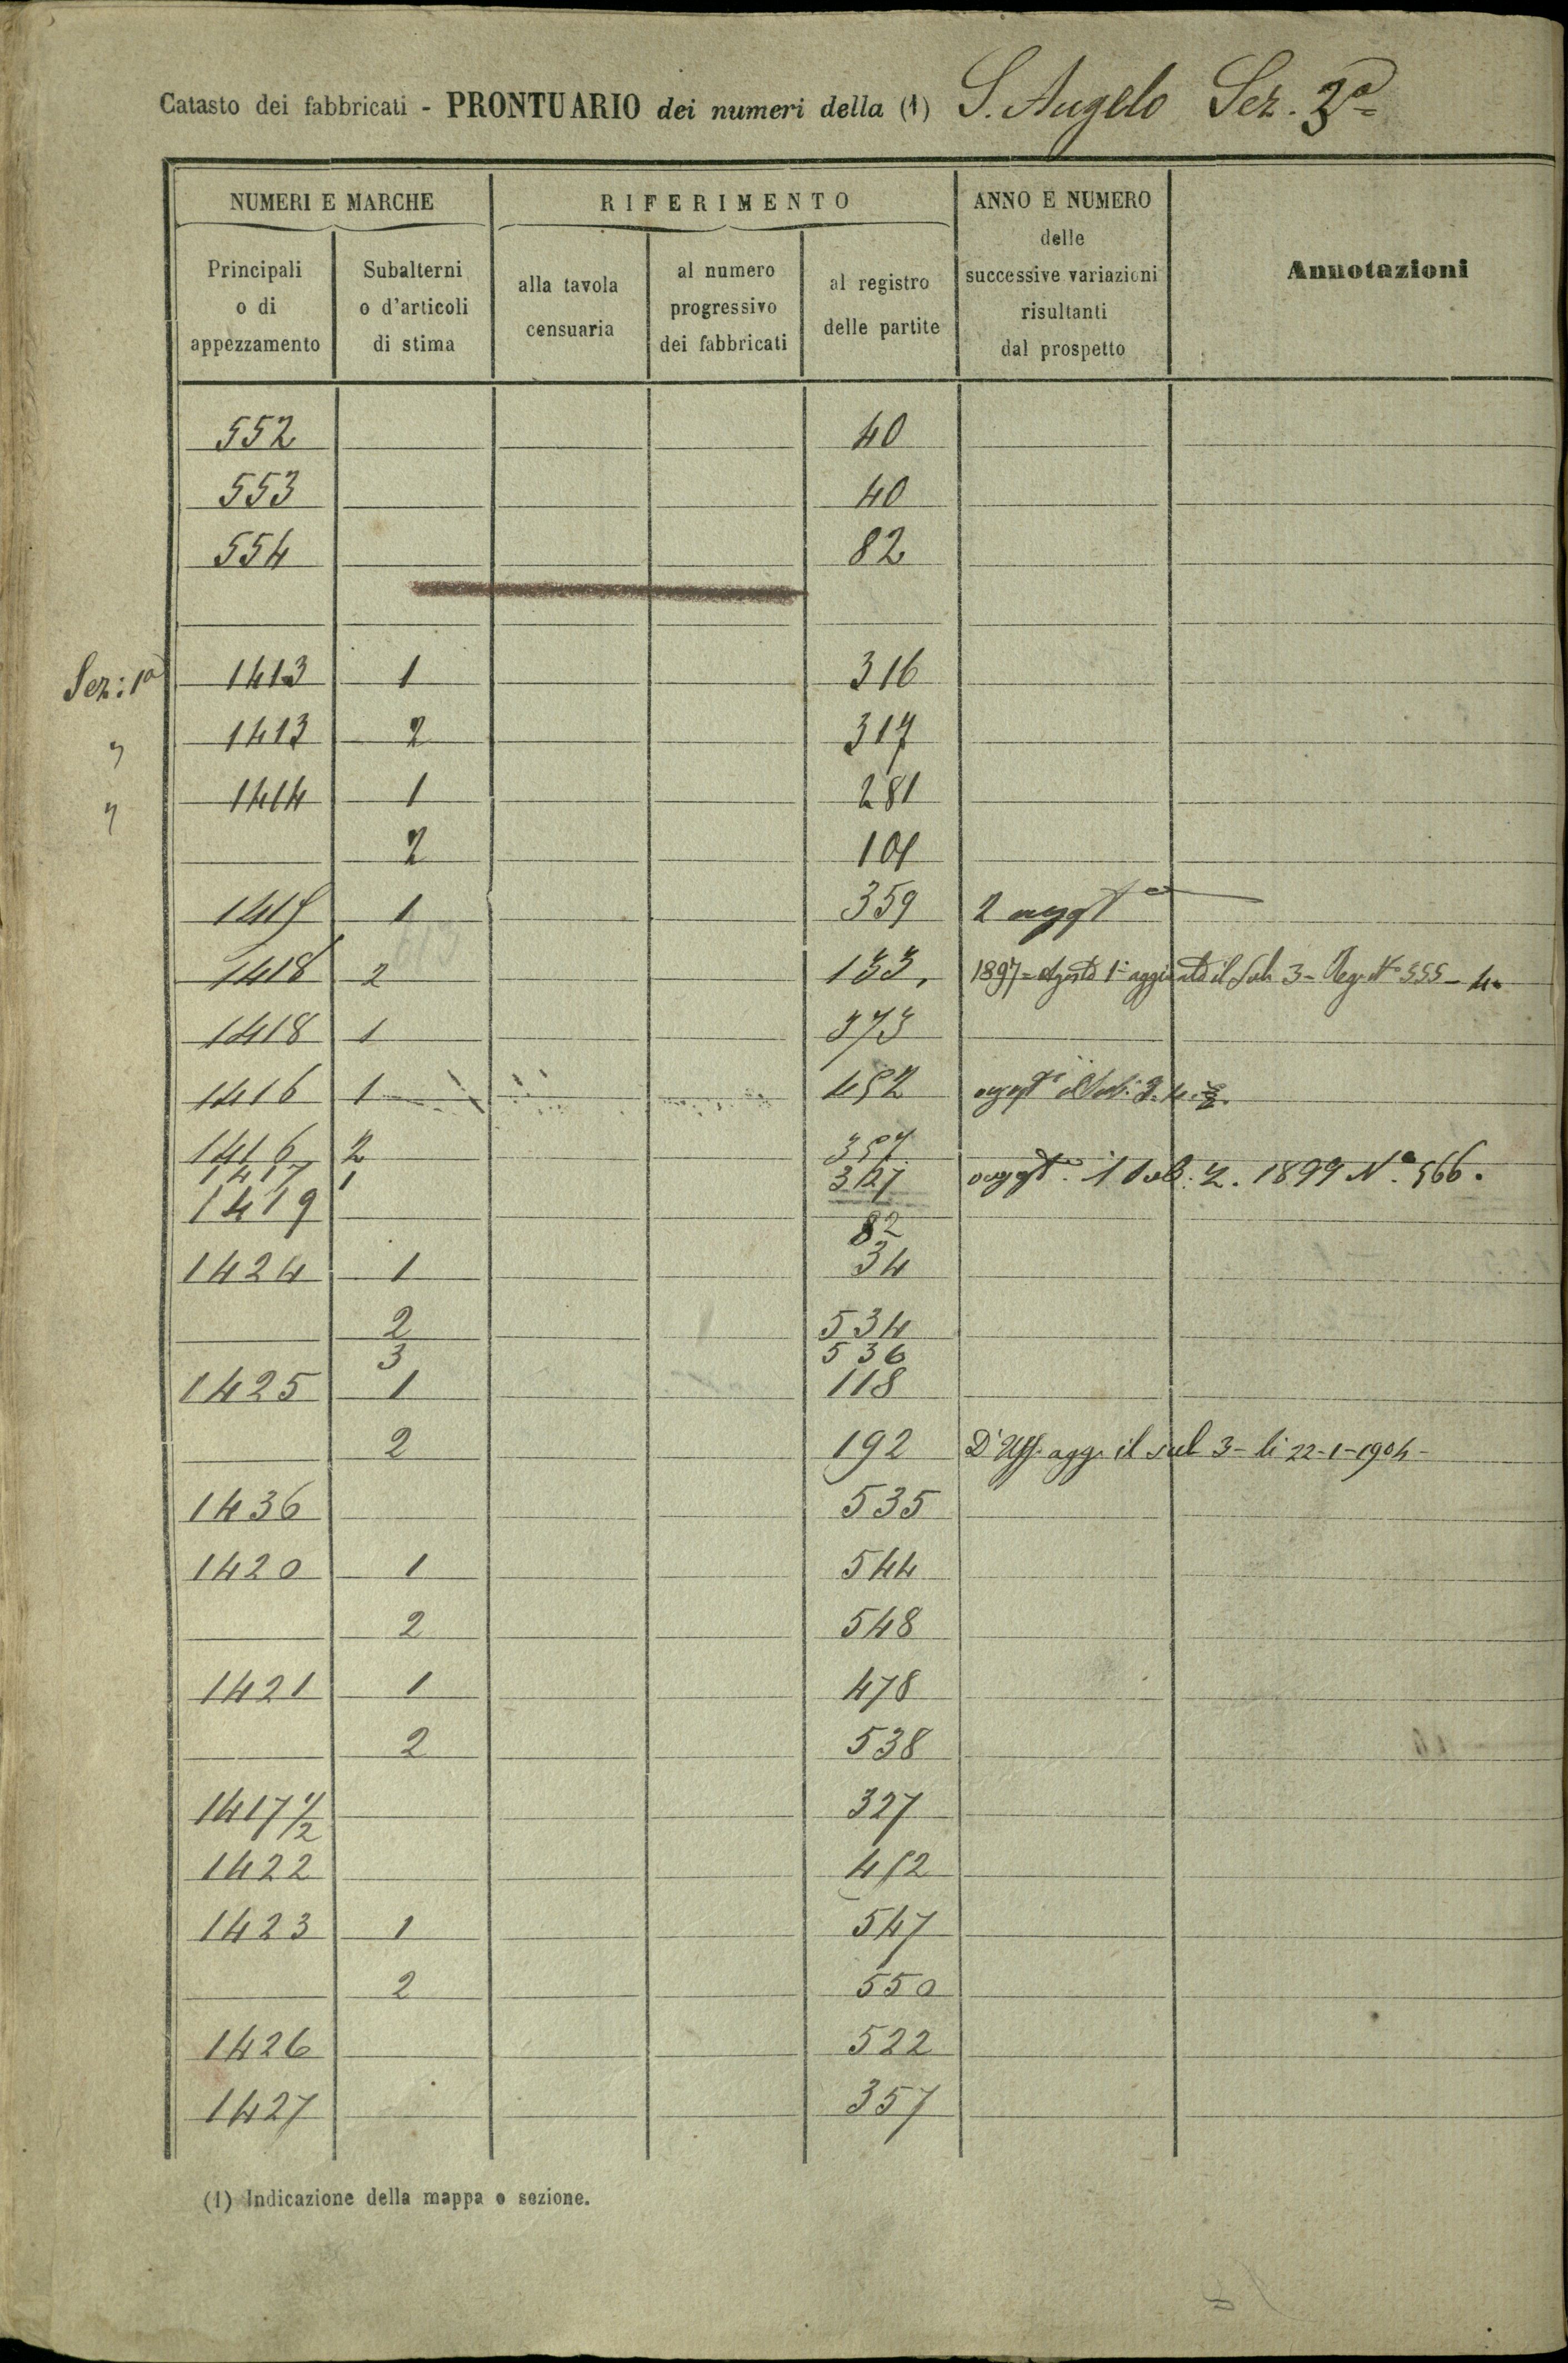 Catasto dei fabbricati - PRONTUARIO dei numeri della (1) S. Angelo Sez. 3ª
NUMERI E MARCHE
RIFERIMENTO
ANNO E NUMERO
delle
successive variazioni
risultanti
dal prospetto
Annotazioni
Principali
o di
appezzamento
Subalterni
o d'articoli
di stima
alla tavola
censuaria
al numero
progressivo
dei fabbricati
al registro
delle partite
552 40
553 40
554 82
Sez: 1ª 1413 1 316
" 1413 2 317
" 1414 1 281
2
1 359 2 aggtª
1418 2 133, 1897 = Agosto 1º aggiunto il Sub 3 - Reg. Nº 555 - 4.
1418 1 373
1416 1 452 aggtº il Sub: 3. 4.
1416 2 357
1417 1 327 aggtº. 1 Sub: 2. 1899 Nº. 566.
1419 82
1424 1 34
2 534
3 536
1425 1 118
2 192 D'Uff. agg. il sub 3 - li 22-1-1904 -
1436 535
1420 1 544
2 548
1421 1 478
2 538
1417 1/2 327
1422 452
1423 1 547
2 550
1426 522
1427 357
(1) Indicazione della mappa o sezione.